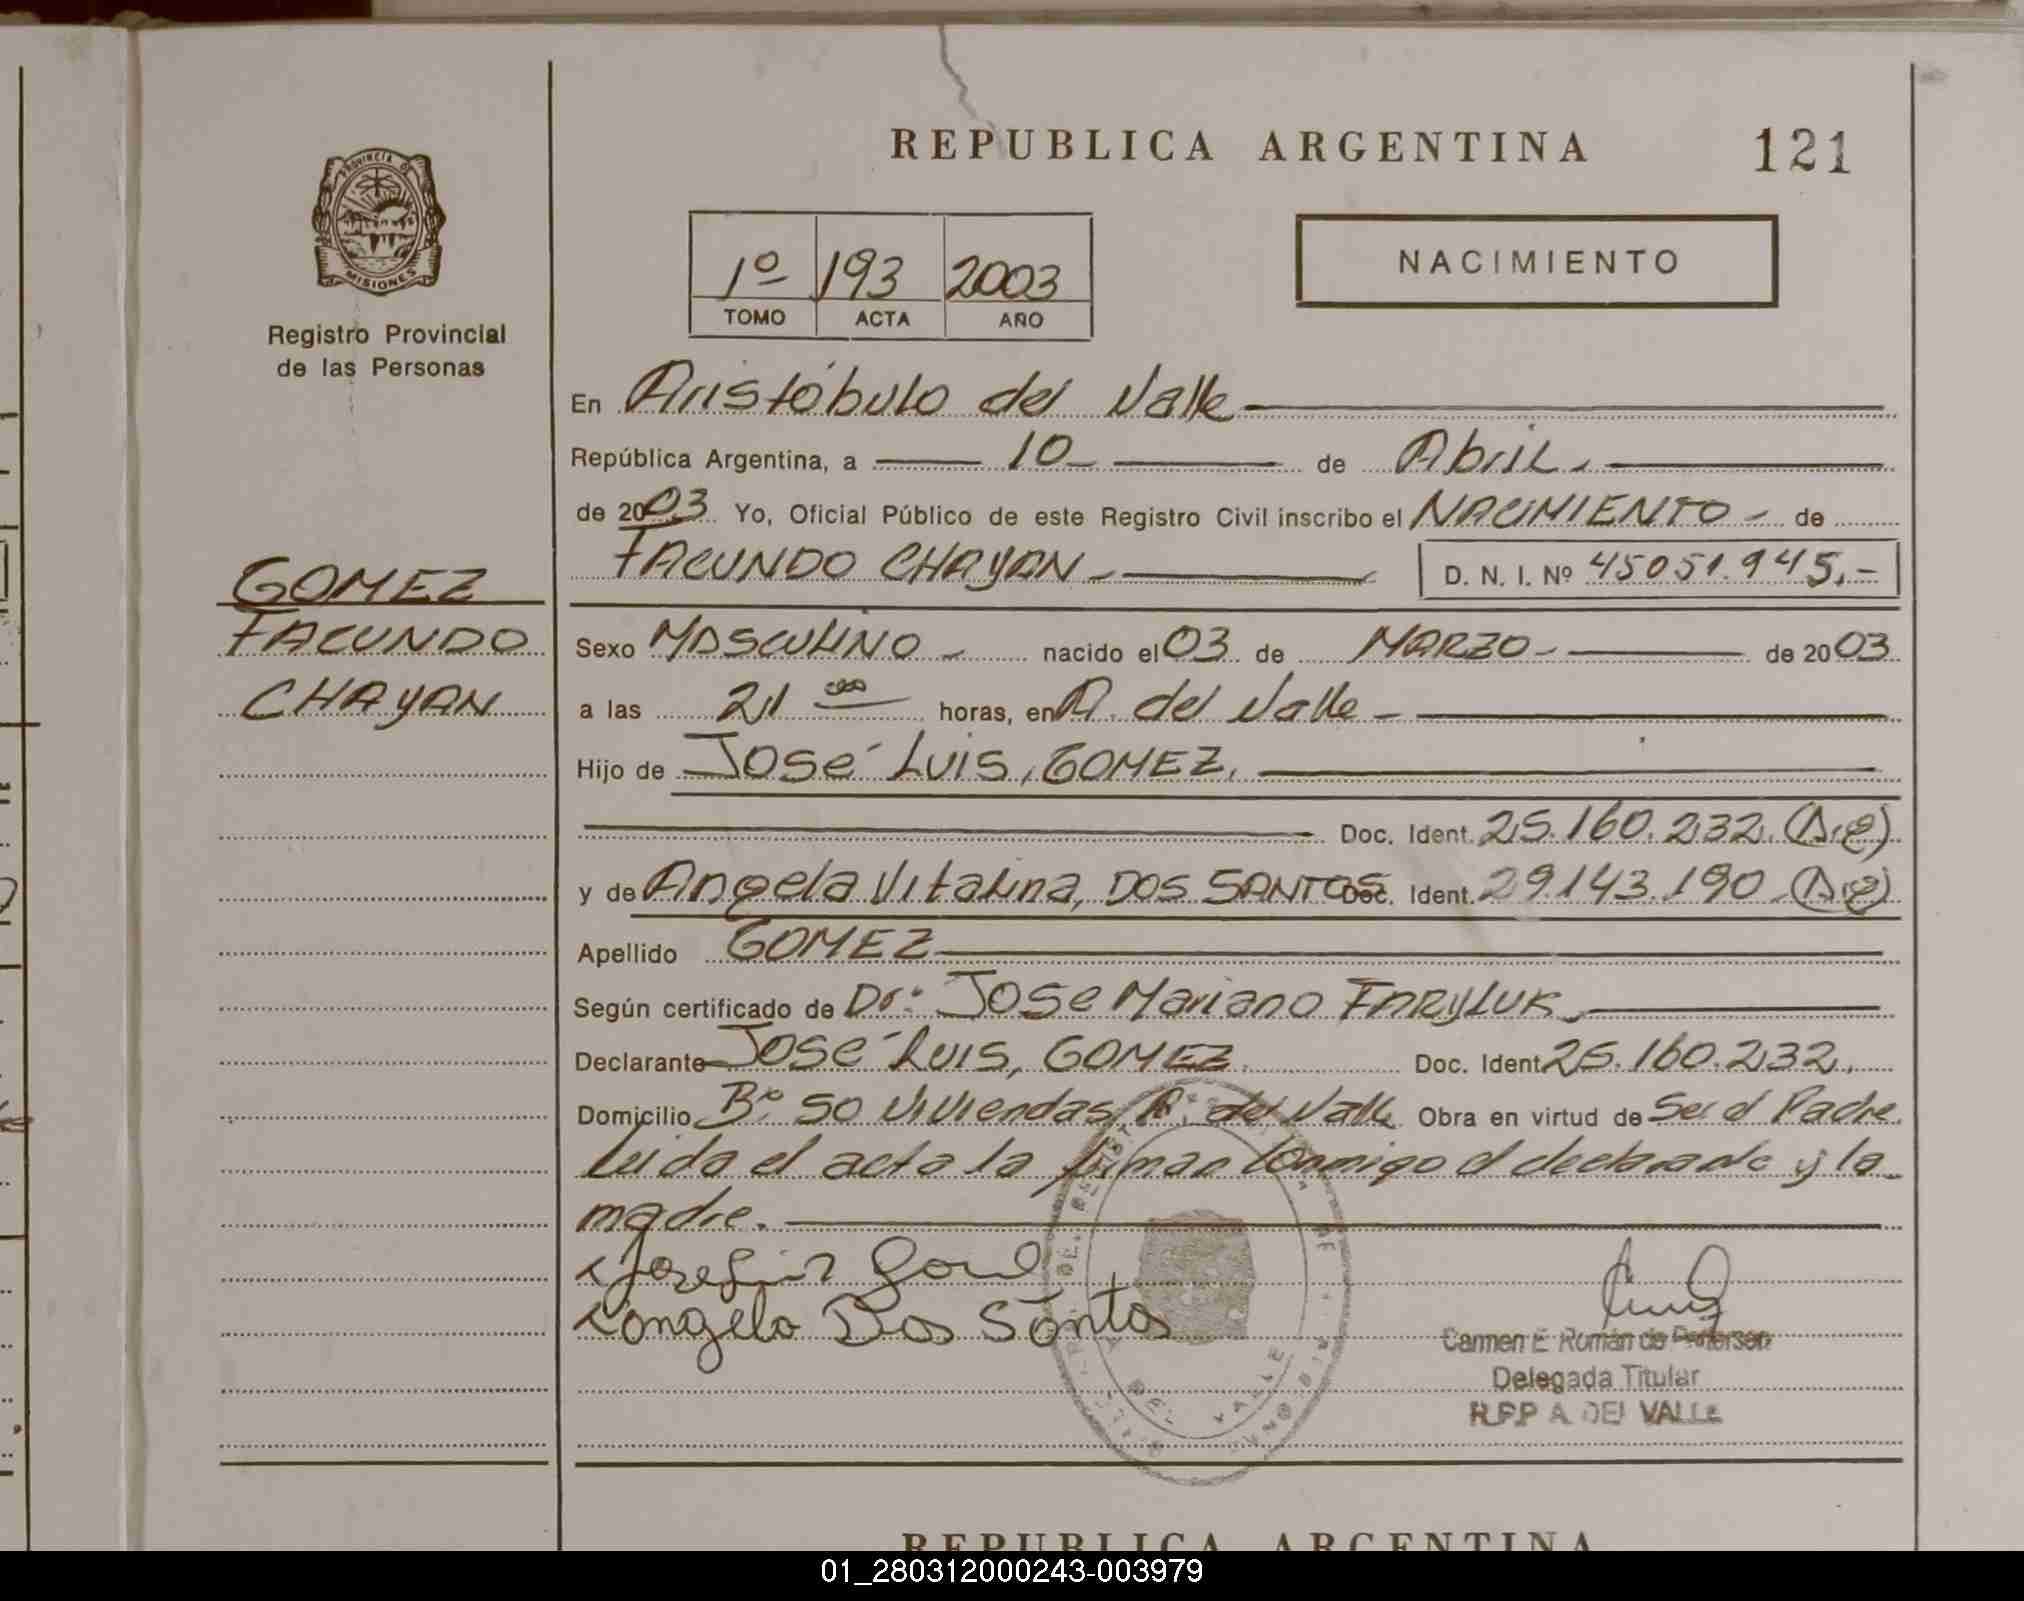 REPUBLICA ARGENTINA 121
PROVINCIA DE MISIONES
Registro Provincial
de las Personas
1º 193 2003
TOMO ACTA AÑO
NACIMIENTO
En Aristóbulo del Valle
República Argentina, a 10 de Abril.
de 2003 Yo, Oficial Público de este Registro Civil inscribo el NACIMIENTO - de
FACUNDO CHAYAN D. N. I. Nº 45051.945.-
GOMEZ
FACUNDO
CHAYAN
Sexo MASCULINO - nacido el 03 de MARZO - de 2003
a las 21 horas, en A. del Valle -
Hijo de José Luis, GOMEZ.
Doc. Ident. 25.160.232.
y de Angela Vitalina, DOS SANTOS Doc. Ident. 29.143.190.
Apellido GOMEZ
Según certificado de Dr: Jose Mariano
Declarante José Luis, GOMEZ. Doc. Ident. 25.160.232.
Domicilio Bº 50 Viviendas, A. del Valle Obra en virtud de Ser el Padre.
Leida el acta la firman conmigo el declarante y la
madre.
Angela Dos Santos
DEL VALLE
Carmen E. Román de
Delegada Titular
R.P.P A. DEL VALLE
REPUBLICA ARGENTINA
01_280312000243-003979